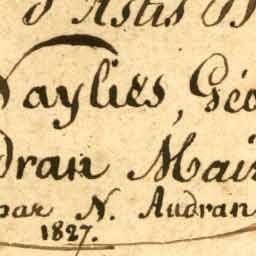 d'Astis
Taylies, Géo
dran Mai
par N. Audran
1827.